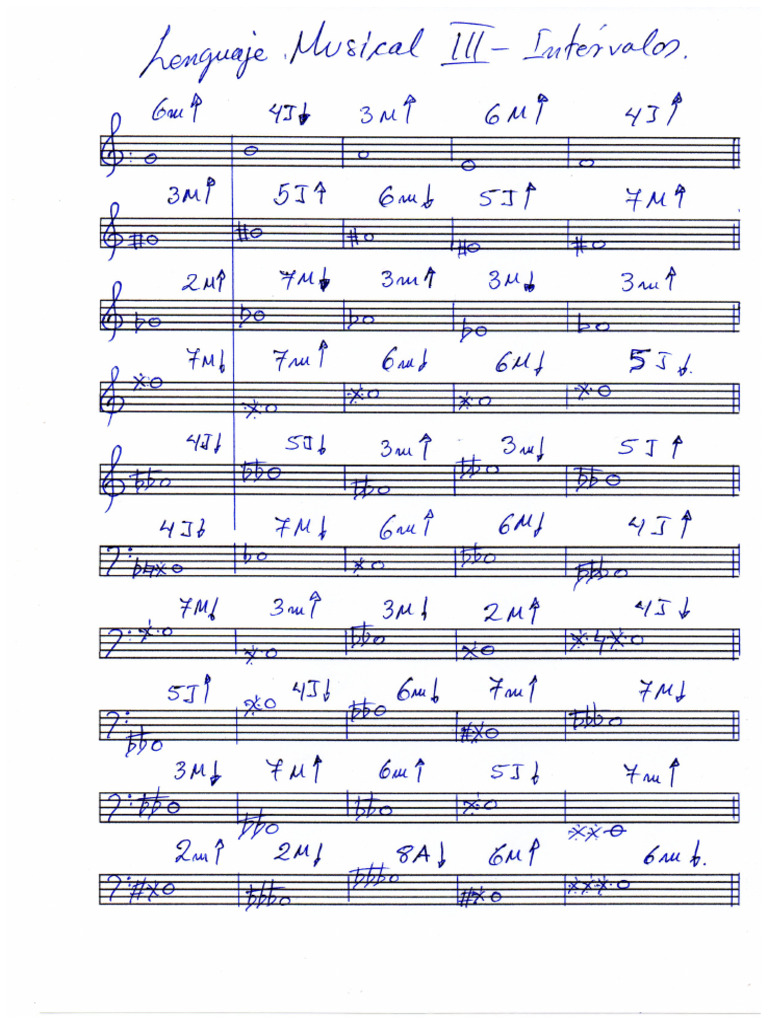 Lenguaje Musical III - Intérvalos.
6m↑ 4J↓ 3M↑ 6M↑ 4J↑
3M↑ 5J↑ 6m↓ 5J↑ 7M↑
2M↑ 7M↓ 3m↑ 3M↓ 3m↑
7M↓ 7m↑ 6m↓ 6M↓ 5J↓.
4J↓ 5J↓ 3m↑ 3m↓ 5J↑
4J↓ 7M↓ 6m↑ 6M↓ 4J↑
7M↓ 3m↑ 3M↓ 2M↑ 4J↓
5J↑ 4J↓ 6m↓ 7m↑ 7M↓
3M↓ 7M↑ 6m↑ 5J↓ 7m↑
2m↑ 2M↓ 8A↓ 6M↑ 6m↓.